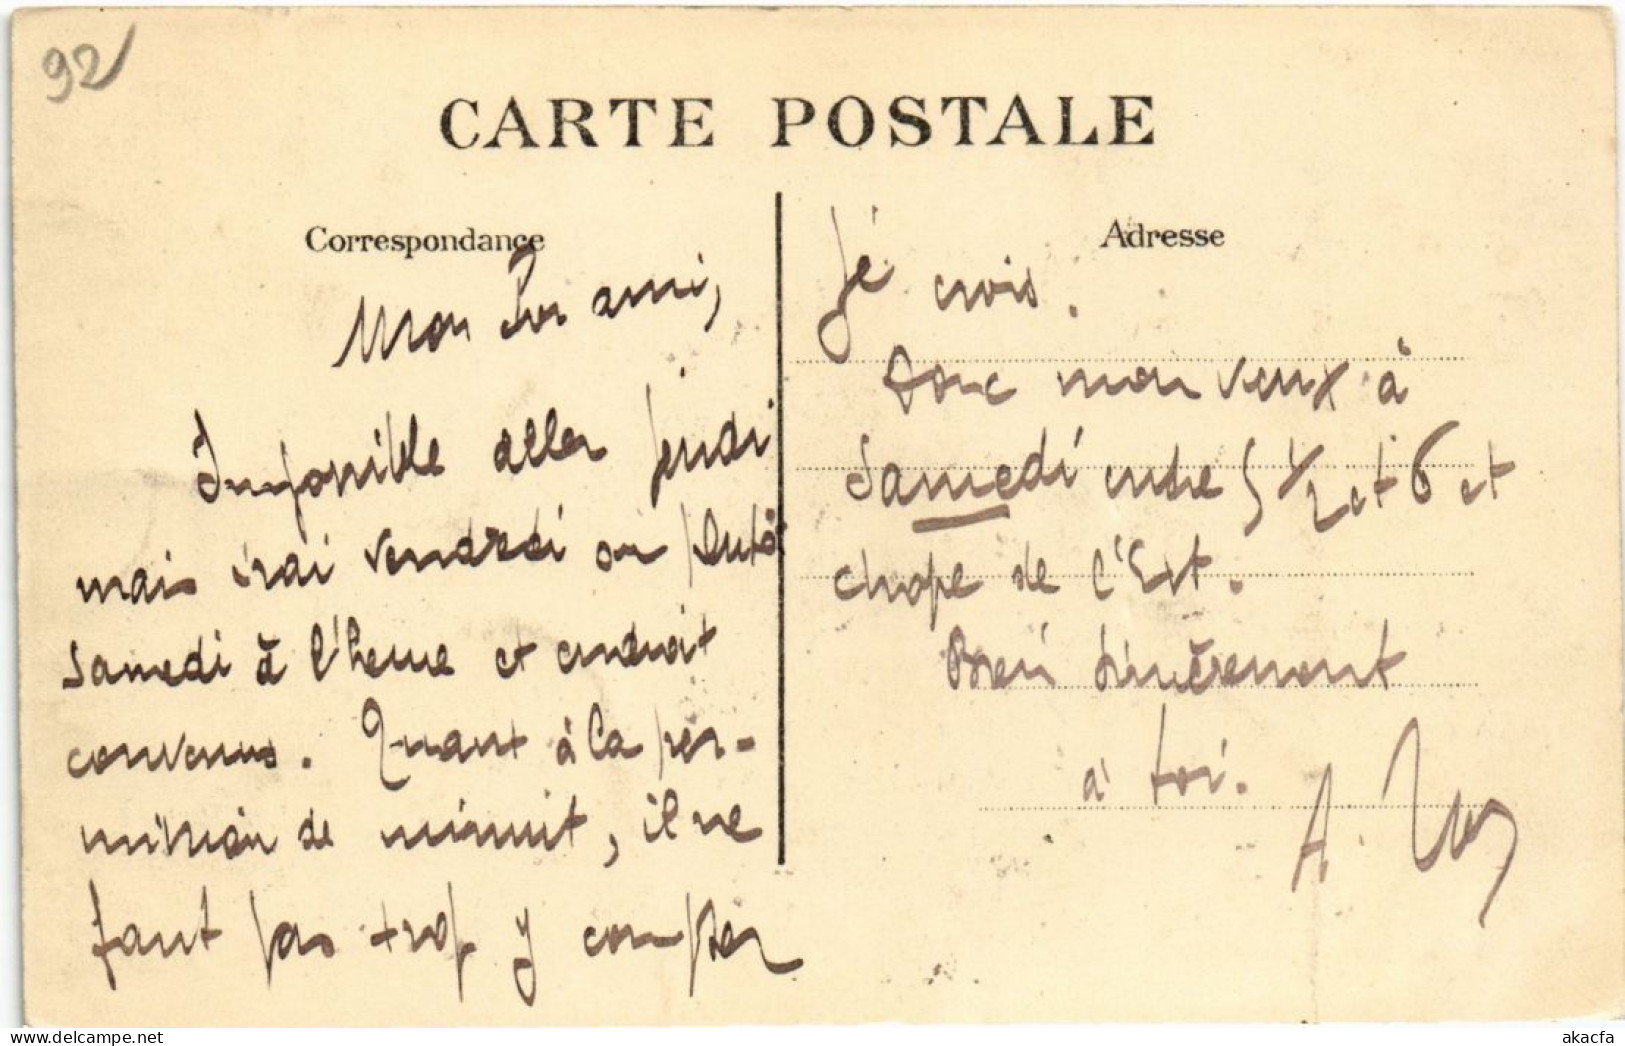 92
CARTE POSTALE
Correspondance
Adresse
Mon bon ami,
Impossible aller jeudi
mais irai vendredi ou plutôt
samedi à l'heure et endroit
convenus. Quant à la per-
mission de minuit, il ne
faut pas trop y compter
Je crois.
Donc mon vieux à
Samedi entre 5 1/2 et 6 et
chope de l'Est.
Bien sincèrement
à toi.
A.
akacfa